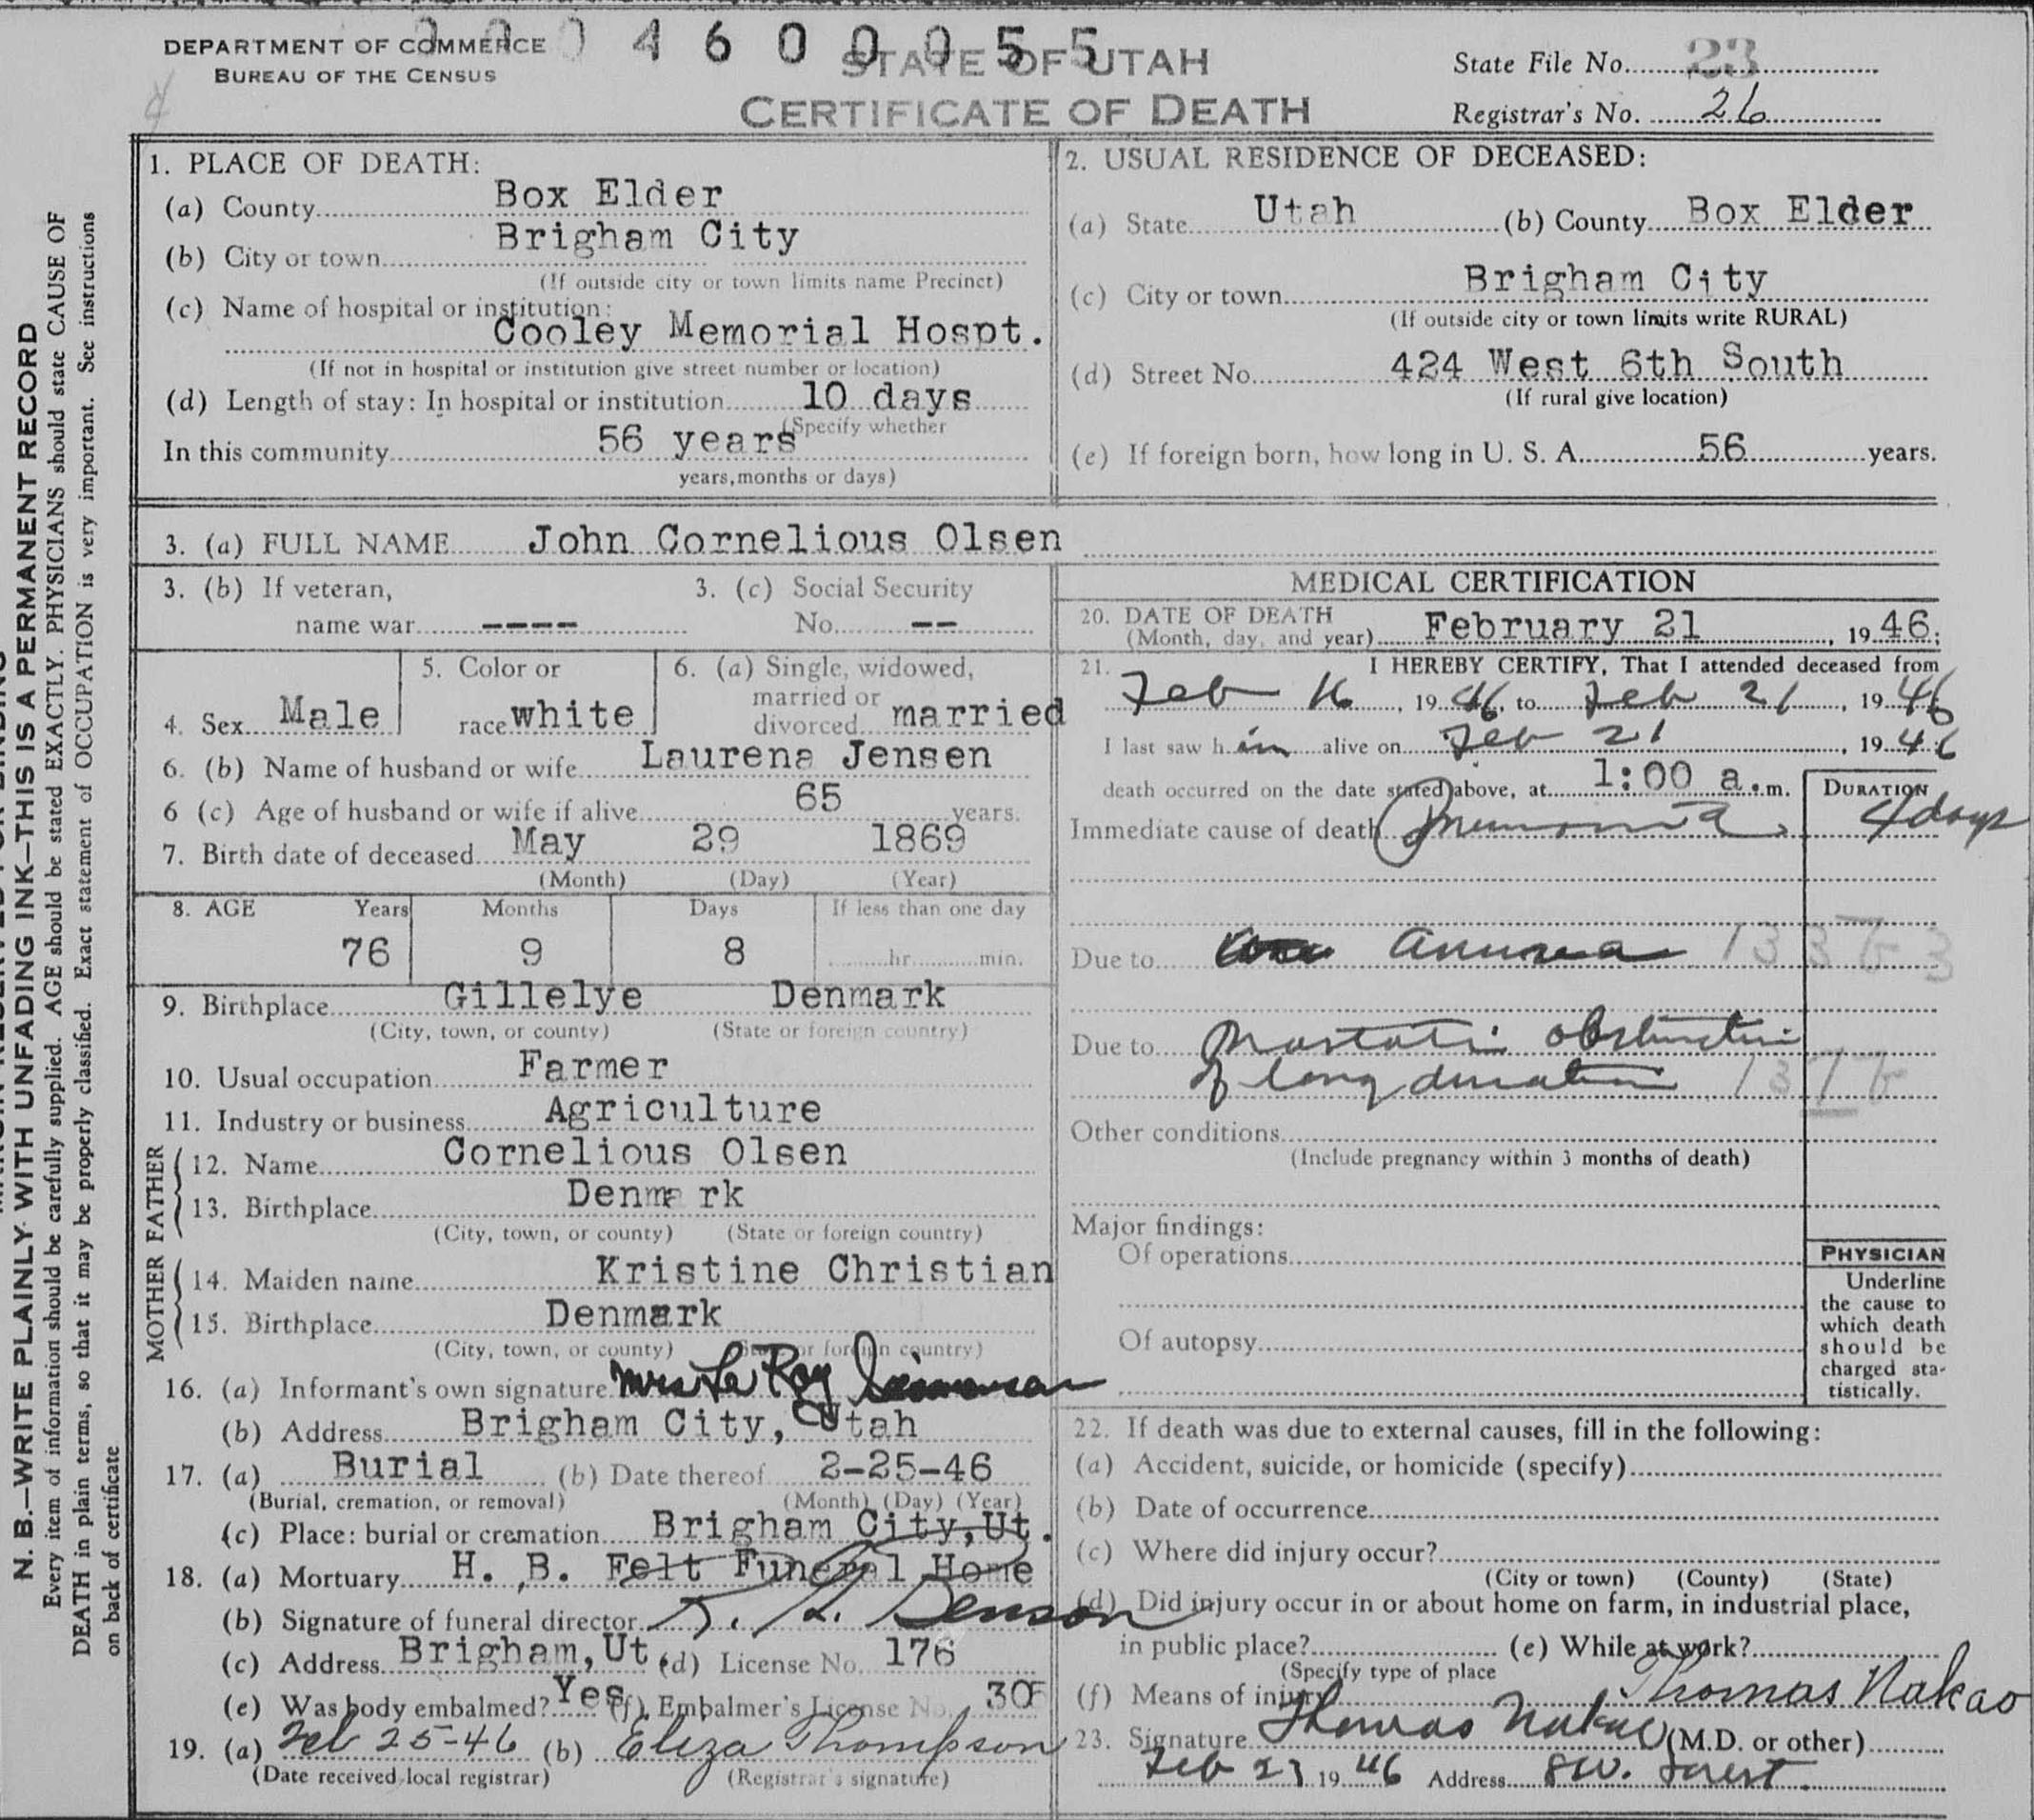 DEPARTMENT OF COMMERCE
BUREAU OF THE CENSUS
4 6 0 0 0 5 5
STATE OF UTAH
CERTIFICATE OF DEATH
State File No. 23
Registrar's No. 26
N. B.—WRITE PLAINLY WITH UNFADING INK—THIS IS A PERMANENT RECORD
Every item of information should be carefully supplied. AGE should be stated EXACTLY. PHYSICIANS should state CAUSE OF
DEATH in plain terms, so that it may be properly classified. Exact statement of OCCUPATION is very important. See instructions
on back of certificate
1. PLACE OF DEATH:
(a) County Box Elder
(b) City or town Brigham City
(If outside city or town limits name Precinct)
(c) Name of hospital or institution:
Cooley Memorial Hospt.
(If not in hospital or institution give street number or location)
(d) Length of stay: In hospital or institution 10 days
(Specify whether
In this community 56 years
years, months or days)
2. USUAL RESIDENCE OF DECEASED:
(a) State Utah (b) County Box Elder
(c) City or town Brigham City
(If outside city or town limits write RURAL)
(d) Street No. 424 West 6th South
(If rural give location)
(e) If foreign born, how long in U. S. A. 56 years.
3. (a) FULL NAME John Cornelious Olsen
3. (b) If veteran, 3. (c) Social Security
name war ---- No. --
4. Sex Male
5. Color or
race white
6. (a) Single, widowed,
married or
divorced married
6. (b) Name of husband or wife Laurena Jensen
6 (c) Age of husband or wife if alive 65 years.
7. Birth date of deceased May 29 1869
(Month) (Day) (Year)
8. AGE Years Months Days If less than one day
76 9 8 hr. min.
9. Birthplace Gillelye Denmark
(City, town, or county) (State or foreign country)
10. Usual occupation Farmer
11. Industry or business Agriculture
FATHER
12. Name Cornelious Olsen
13. Birthplace Denmark
(City, town, or county) (State or foreign country)
MOTHER
14. Maiden name Kristine Christian
15. Birthplace Denmark
(City, town, or county) (State or foreign country)
16. (a) Informant's own signature Mrs Le Roy
(b) Address Brigham City, Utah
17. (a) Burial (b) Date thereof 2-25-46
(Burial, cremation, or removal) (Month) (Day) (Year)
(c) Place: burial or cremation Brigham City, Ut.
18. (a) Mortuary H. B. Felt Funeral Home
(b) Signature of funeral director Benson
(c) Address Brigham, Ut. (d) License No. 176
(e) Was body embalmed? Yes (f) Embalmer's License No. 305
19. (a) Feb 25-46 (b) Eliza Thompson
(Date received local registrar) (Registrar's signature)
MEDICAL CERTIFICATION
20. DATE OF DEATH
(Month, day, and year) February 21, 1946;
21. I HEREBY CERTIFY, That I attended deceased from
Feb 16, 1946, to Feb 21, 1946
I last saw him alive on Feb 21, 1946
death occurred on the date stated above, at 1:00 a.m.
DURATION
Immediate cause of death Pneumonia 4 days
Due to Anurea
Due to Prostatic obstruction
of long duration 137b
Other conditions
(Include pregnancy within 3 months of death)
Major findings:
Of operations
Of autopsy
PHYSICIAN
Underline
the cause to
which death
should be
charged sta-
tistically.
22. If death was due to external causes, fill in the following:
(a) Accident, suicide, or homicide (specify)
(b) Date of occurrence
(c) Where did injury occur?
(City or town) (County) (State)
(d) Did injury occur in or about home on farm, in industrial place,
in public place? (e) While at work?
(Specify type of place
(f) Means of injury Thomas Nakao
23. Signature Thomas Nakao (M.D. or other)
Feb 23 1946 Address 8 W. Forest.